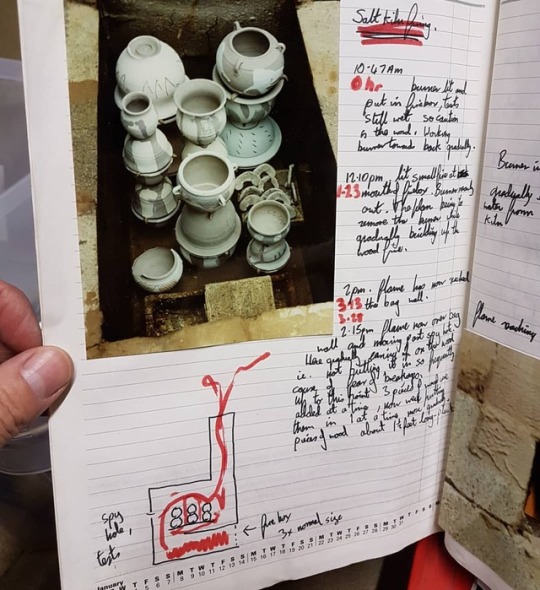 Salt kiln firing.
10-47am
0hr burner lit and
put in firebox, tests
still wet so caution
is the word. Working
burner towards back gradually.
12.10pm lit small fire at
1-23 mouth of firebox. Burner nearly
out. The plan being to
remove the burner while
gradually bricking up the
wood fire.
2pm. flame has now reached
3-13 the bag wall.
3-28
2-15pm flame now over bag
wall and moving past spy hole.
Have gradually easing of on the wood
ie. not putting it in so frequently
cause of fear of breakages.
up to this point 3 pieces of wood were
added at a time, now
them in 1 at a time, now gradually
pieces of wood about 1½ feet long
Burner in
gradually
water from
kiln
flame reaching
spy
hole,
tests
← fire box
3x normal size
January
M T W T F S S M T W T F S S M T W T F S S M T W T F S S M T W
7 8 9 10 11 12 13 14 15 16 17 18 19 20 21 22 23 24 25 26 27 28 29 30 31